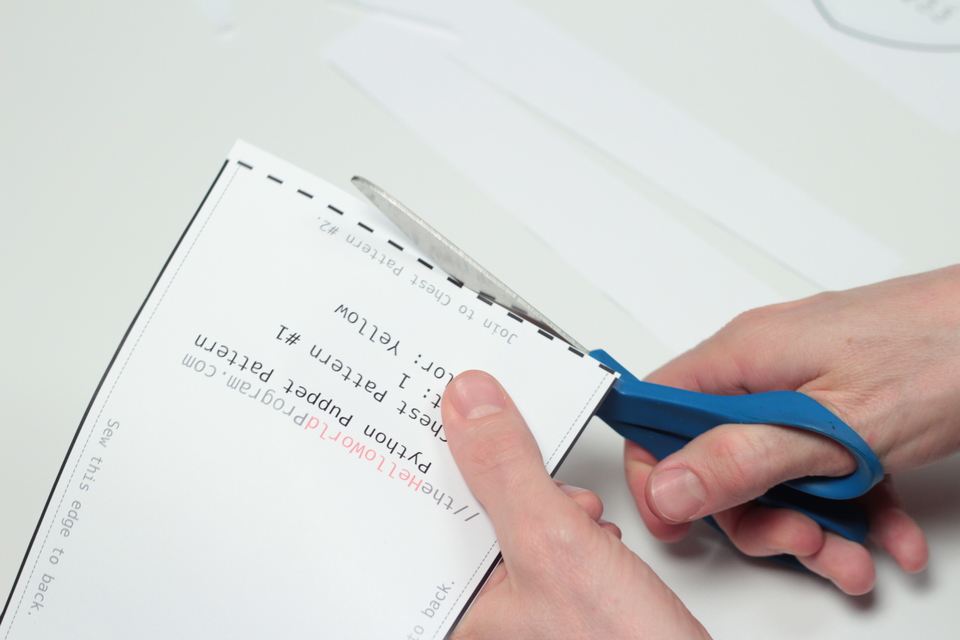 //theHelloWorldProgram.com
Python Puppet Pattern
Chest Pattern #1
t: 1
lor: Yellow
Join to Chest Pattern #2.
Sew this edge to back.
to back.